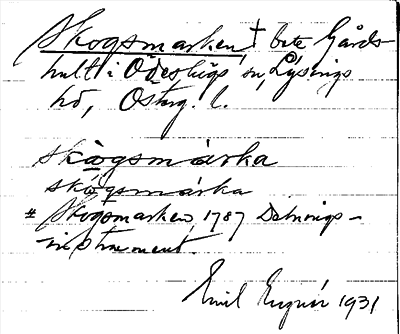 Skogsmarken, † bete Gårds-
hult i Ödeshögs sn, Lysings
hd, Österg. l.
skògsmárka
skógsmárka
# Skogsmarken, 1787 Delnings-
instrument.
Emil 1931